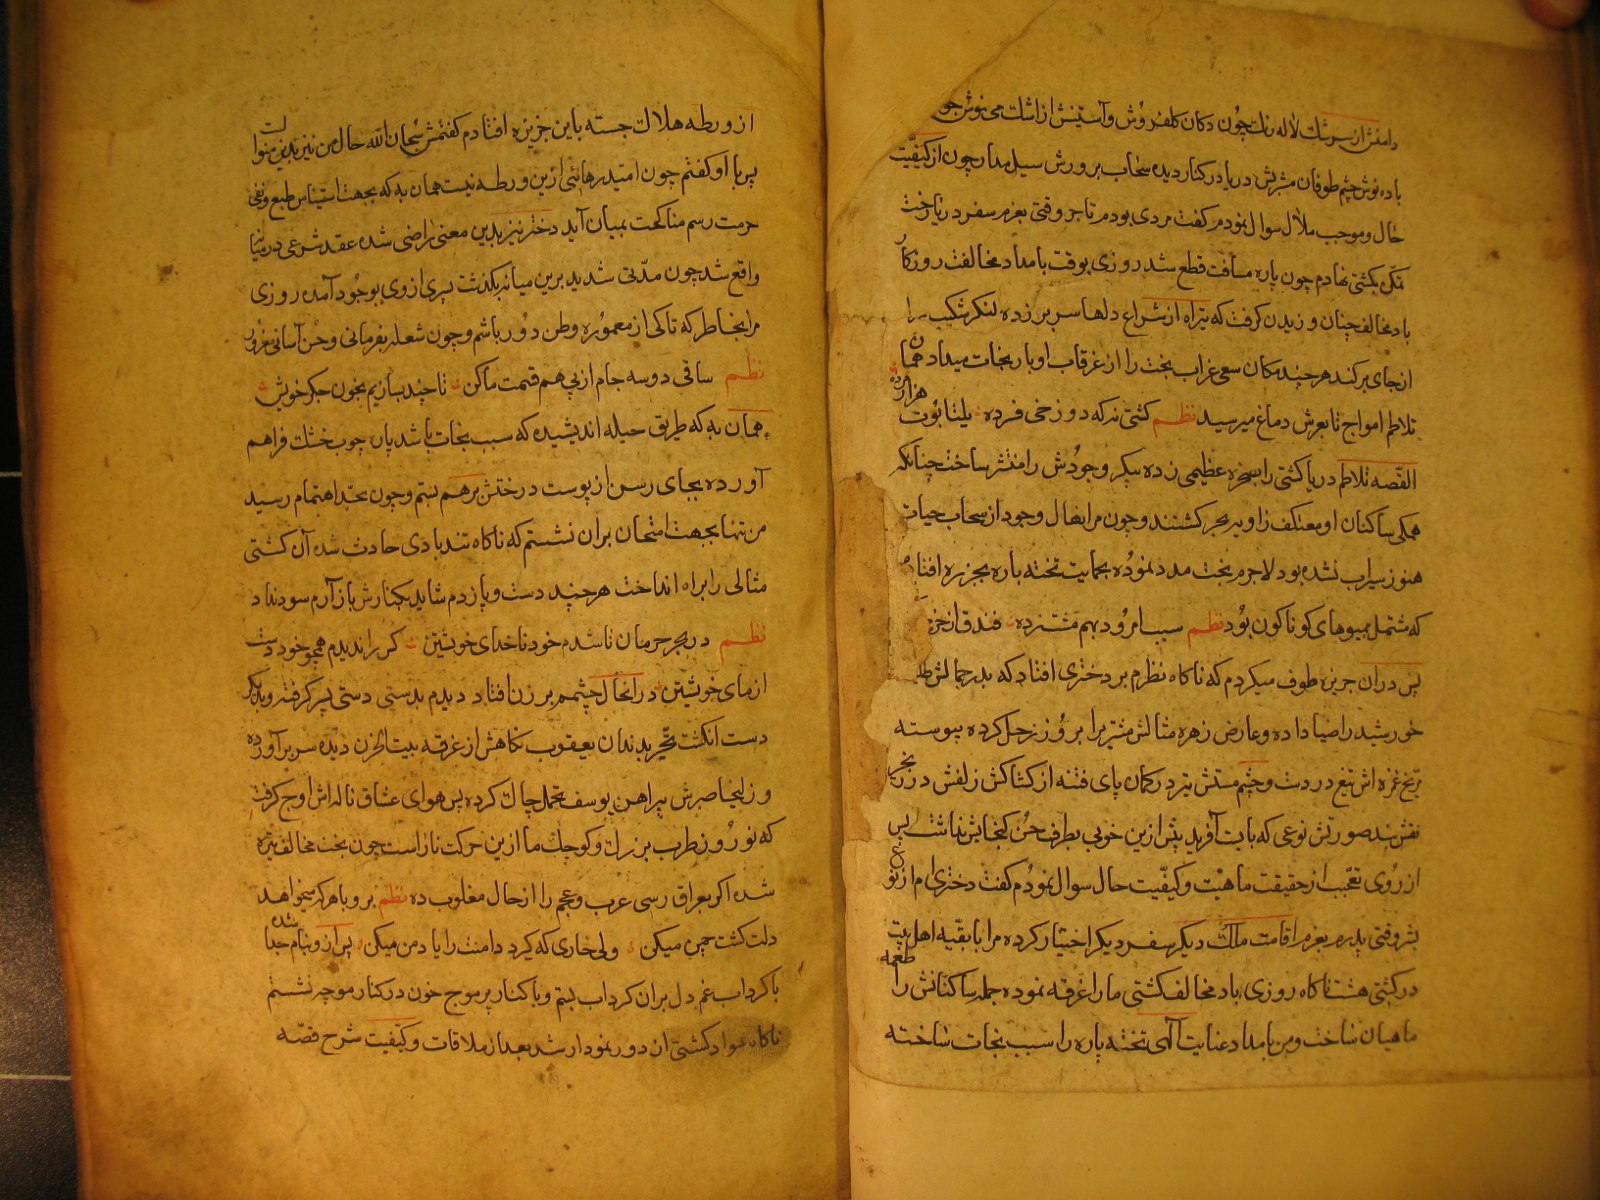 دامنش از سرشک لاله رنک چون دکان کلفروش و آستینش از اشک می نوش چو
باده نوش چشم طوفان مشربش دریا در کنار دیده سحاب پرورش سیل مدار چون از کیفیت
حال و موجب ملال سوال نمودم کفت مردی بودم تاجر وقتی بعزم سفر دریا رخت
بکشتی نهادم چون پاره مسافت قطع شد روزی بوقت بامداد مخالفت روزکار
باد مخالف چنان وزیدن کرفت که تیر آه از شراع دلها سر بر زده لنکر شکیب را
از جای برکند هر چند مکان سعی غراب بخت را از غرقاب او بار نجات میداد همان
تلاطم امواج تا بعرش دماغ میرسید نظم کشتی نه که دوزخی فرده یلتابوت هزار مرده
القصه تلاطم دریا کشتی را بصخره عظیمی زده پیکر وجودش را منتشر ساخت چنانکه
همکی ساکنان او معتکف زاویه بحر کشتند و چون مرا نهال وجود از سحاب حیات
هنوز سیراب نشده بود لاجرم بخت مدد نموده بحمایت تخته پاره بجزیره افتادم
که مشتمل بمیوهای کوناکون بود نظم سیب امرود بهم مشت زده فندق از خر
پس در ان جزیره طوف میکردم که ناکاه نظرم بر دختری افتاد که بدر جمالش
خورشید را ضیا داده و عارض زهره مثالش مشتری را بروز زحل کرده پیوسته
مریخ غمزه اش تیغ در دست و چشم مستش تیر در کمان پای فتنه از کشاکش زلفش در زنجیر
نقش بند صورتش نوعی که بایت آفرید پیش ازین خوبی بطرف حسن کنجایش نداشت پس
از روی تعجب از حقیقت ماهیت و کیفیت حال سوال نمودم کفت دختری ام از
وقتی پدرم بعزم اقامت ملک دیکر سفر دیکر اختیار کرده مرا با بقیه اهل بیت
در کشتی هشت ناکاه روزی باد مخالف کشتی ما را غرقه نموده جمله ساکنانش را طعمه
ماهیان ساخت و من بامداد عنایت آلهی تخته پاره را سبب نجات ساخته
از ورطه هلاک جسته باین جزیره افتادم کفتمش سبحان الله حال من نیز بدین منوال
پس با او کفتم چون امید رهائی ازین ورطه نیست همان به که بجهت استیناس طبع و نفی
حرمت رسم مناکحت بمیان آید دختر نیز بدین معنی راضی شده عقد شرعی در میانه
واقع شد چون مدتی شدید برین میانه بکذشت پسری از وی بوجود آمده روزی
مرا بخاطر که تا کی از معموره وطن دور باشم و چون شعله بفرمانی و حسن آسانی
نظم ساقی دو سه جام از پی هم قسمت ما کن تا چند بسازیم بخون جکر خویش
همان به که طریق حیله اندیشیده که سبب نجات باشد پس چوب خشک فراهم
آورده بجای رسن از پوست درختش بر هم بستم و چون بحد اهتمام رسید
من تنها بجهت امتحان بران نشستم که ناکاه تند بادی حادث شده آن کشتی
مثالی را براه انداخت هر چند دست و پا زدم شاید بکنارش باز آرم سود نداد
نظم در بحر حرمان تا شدم خود ناخدای خویشتن کس را ندیدم همچو خود دست
از مای خویشتن در انحال چشمم بر زن افتاد دیدم بدستی دستی پسر کرفته و بدیکر
دست انکشت تحیر بدندان یعقوب نکاهش از غرفه بیت الحزن دیده سر برآورده
و زلیخا صبرش پیراهن یوسف تحمل چاک کرده پس هوای عشاق ناله اش اوج کرفت
که نوروز طرب بزرک و کوچک ما ازین حرکت ناراست چون بخت مخالف تیره
شده اکر بعراق رسی عرب و عجم را از حال مغلوب ده نظم برو با هر که میخواهد
دلت کشت چمن میکن ولی خاری که کیرد دامنت را یاد من میکن پس از و بنام جدا شده
با کرداب غم دل بران کرداب بستم و با کنار پر موج خون در کنار موجه نشستم
ناکاه سواد کشتی از دور نمودار شد بعد از ملاقات و کیفیت شرح قصه